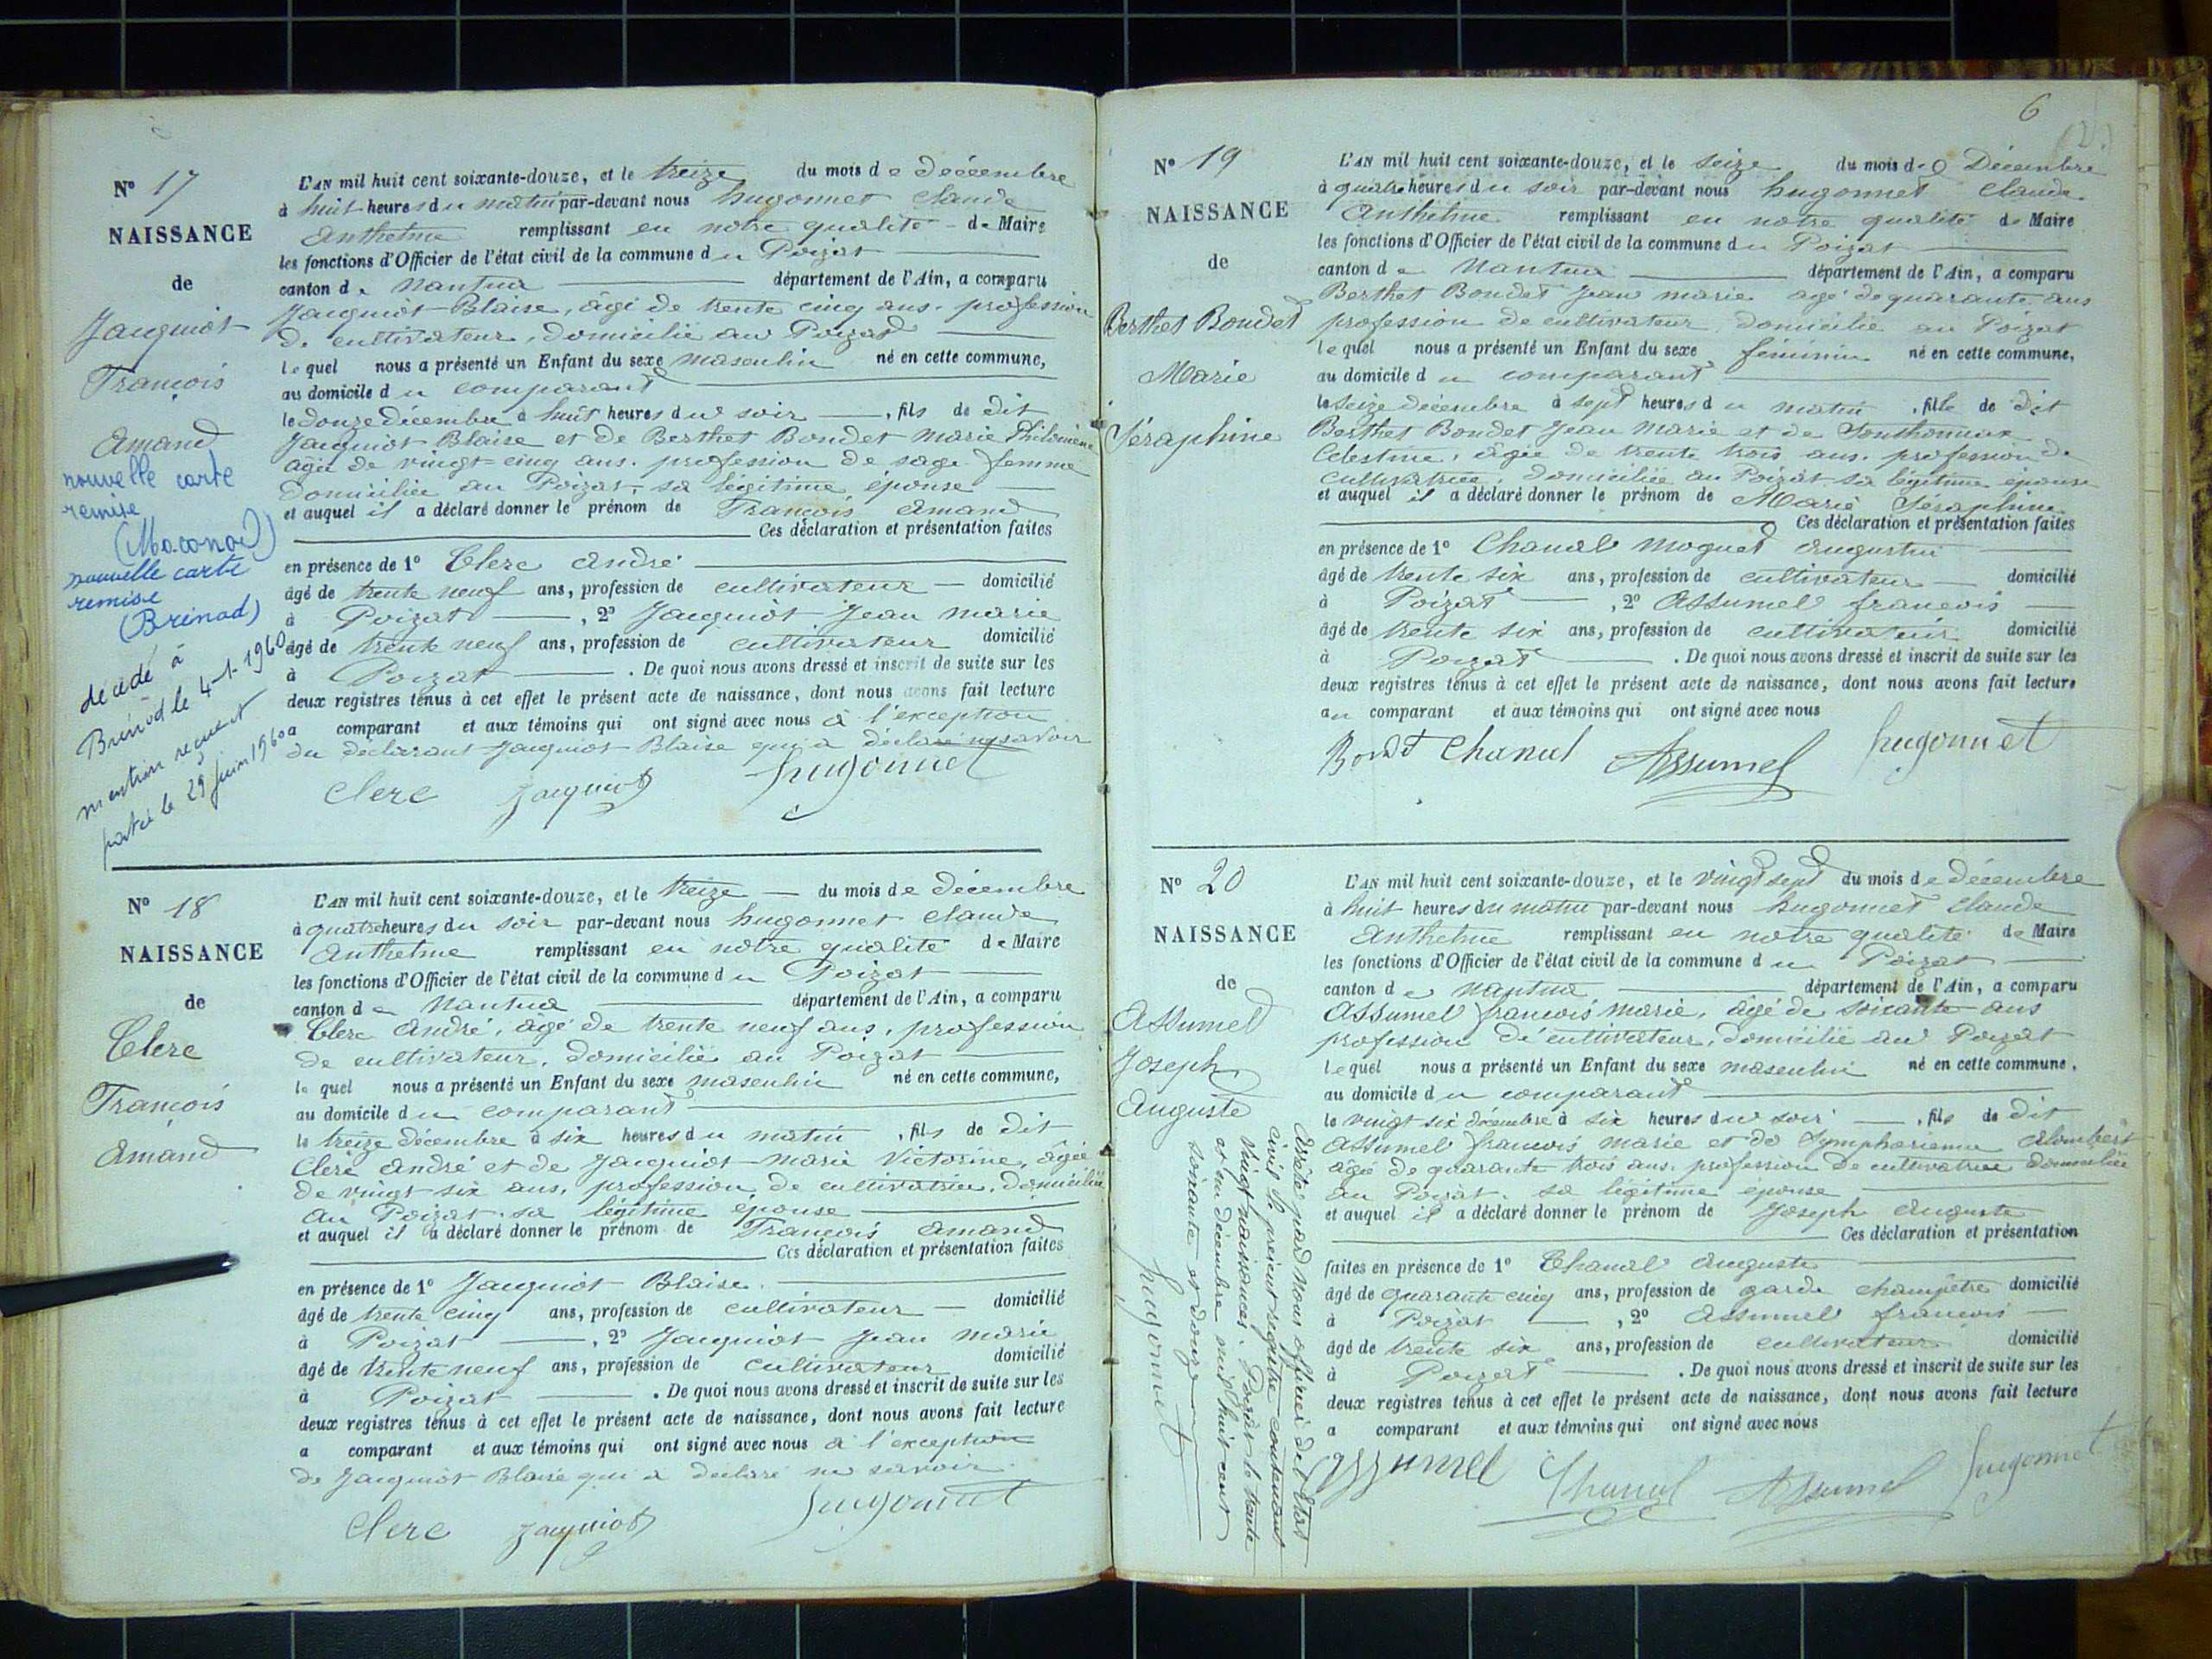 N° 17
NAISSANCE
de
Jacquiot
François
Amand
nouvelle carte
remise
(Maconod)
nouvelle carte
remise
(Brénod)
décédé à
Brénod le 4-1-1960
mention
portée le 29 juin 1960
L'AN mil huit cent soixante-douze, et le treize du mois de décembre
à huit heures du matin par-devant nous hugonnet Claude
Anthelme remplissant en notre qualité de Maire
les fonctions d'Officier de l'état civil de la commune du Poizat
canton de Nantua département de l'Ain, a comparu
Jacquiot Blaise, âgé de trente cinq ans. profession
de cultivateur, domicilié au Poizat
lequel nous a présenté un Enfant du sexe masculin né en cette commune,
au domicile du comparant
le douze décembre à huit heures du soir, fils de dit
Jacquiot Blaise et de Berthet Bondet Marie Philomène
âgée de vingt-cinq ans. profession de sage femme
domiciliée au Poizat, sa légitime épouse
et auquel il a déclaré donner le prénom de François Amand
Ces déclaration et présentation faites
en présence de 1° Clerc André
âgé de trente neuf ans, profession de cultivateur domicilié
à Poizat, 2° Jacquiot Jean marie
âgé de trente neuf ans, profession de cultivateur domicilié
à Poizat. De quoi nous avons dressé et inscrit de suite sur les
deux registres tenus à cet effet le présent acte de naissance, dont nous avons fait lecture
a comparant et aux témoins qui ont signé avec nous à l'exception
du déclarant Jacquiot Blaise qui a déclaré ne savoir
Clerc Jacquiot hugonnet
N° 18
NAISSANCE
de
Clerc
François
Amand
L'AN mil huit cent soixante-douze, et le treize du mois de décembre
à quatre heures du soir par-devant nous hugonnet Claude
Anthelme remplissant en notre qualité de Maire
les fonctions d'Officier de l'état civil de la commune du Poizat
canton de Nantua département de l'Ain, a comparu
Clerc André, âgé de trente neuf ans, profession
de cultivateur, domicilié au Poizat
lequel nous a présenté un Enfant du sexe masculin né en cette commune,
au domicile du comparant
le treize décembre à six heures du matin, fils de dit
Clerc André et de Jacquiot Marie Victorine, âgée
de vingt-six ans, profession de cultivatrice, domiciliée
au Poizat. sa légitime épouse
et auquel il a déclaré donner le prénom de François Amand
Ces déclaration et présentation faites
en présence de 1° Jacquiot Blaise
âgé de trente cinq ans, profession de cultivateur domicilié
à Poizat, 2° Jacquiot Jean Marie
âgé de trente neuf ans, profession de cultivateur domicilié
à Poizat. De quoi nous avons dressé et inscrit de suite sur les
deux registres tenus à cet effet le présent acte de naissance, dont nous avons fait lecture
a comparant et aux témoins qui ont signé avec nous à l'exception
de Jacquiot Blaise qui a déclaré ne savoir
Clerc Jacquiot hugonnet
6
N° 19
NAISSANCE
de
Berthet Bondet
Marie
Séraphine
L'AN mil huit cent soixante-douze, et le seize du mois de Décembre
à quatre heures du soir par-devant nous hugonnet Claude
Anthelme remplissant en notre qualité de Maire
les fonctions d'Officier de l'état civil de la commune du Poizat
canton de Nantua département de l'Ain, a comparu
Berthet Bondet Jean marie agé de quarante ans
profession de cultivateur domicilié au Poizat
lequel nous a présenté un Enfant du sexe féminin né en cette commune,
au domicile du comparant
le seize décembre à sept heures du matin, fille de dit
Berthet Bondet Jean Marie et de Ponthonnier
Célestine, âgée de trente trois ans. profession de
cultivatrice, domiciliée au Poizat sa légitime épouse
et auquel il a déclaré donner le prénom de Marie Séraphine
Ces déclaration et présentation faites
en présence de 1° Chanal Moguet Augustin
âgé de trente six ans, profession de cultivateur domicilié
à Poizat, 2° Assumel françois
âgé de trente six ans, profession de cultivateur domicilié
à Poizat. De quoi nous avons dressé et inscrit de suite sur les
deux registres tenus à cet effet le présent acte de naissance, dont nous avons fait lecture
au comparant et aux témoins qui ont signé avec nous
Bondt Chanal Assumel hugonnet
N° 20
NAISSANCE
de
Assumel
Joseph
Auguste
L'AN mil huit cent soixante-douze, et le vingt sept du mois de décembre
à huit heures du matin par-devant nous hugonnet Claude
Anthelme remplissant en notre qualité de Maire
les fonctions d'Officier de l'état civil de la commune du Poizat
canton de Nantua département de l'Ain, a comparu
Assumel françois marie, âgé de soixante ans
profession de cultivateur, domicilié au Poizat
lequel nous a présenté un Enfant du sexe masculin né en cette commune,
au domicile du comparant
le vingt six décembre à six heures du soir, fils de dit
Assumel françois marie et de Symphorienne Alombert
âgée de quarante trois ans. profession de cultivatrice domiciliée
au Poizat. sa légitime épouse
et auquel il a déclaré donner le prénom de Joseph Auguste
Ces déclaration et présentation
faites en présence de 1° Chanal Auguste
âgé de quarante cinq ans, profession de garde champêtre domicilié
à Poizat, 2° Assumel françois
âgé de trente six ans, profession de cultivateur domicilié
à Poizat. De quoi nous avons dressé et inscrit de suite sur les
deux registres tenus à cet effet le présent acte de naissance, dont nous avons fait lecture
a comparant et aux témoins qui ont signé avec nous
assumel Chanal Assumel hugonnet
Arrêté par nous officier de l'état
civil le présent registre contenant
vingt naissances. Poizat le trente
et un décembre mil huit cent
soixante et douze
hugonnet